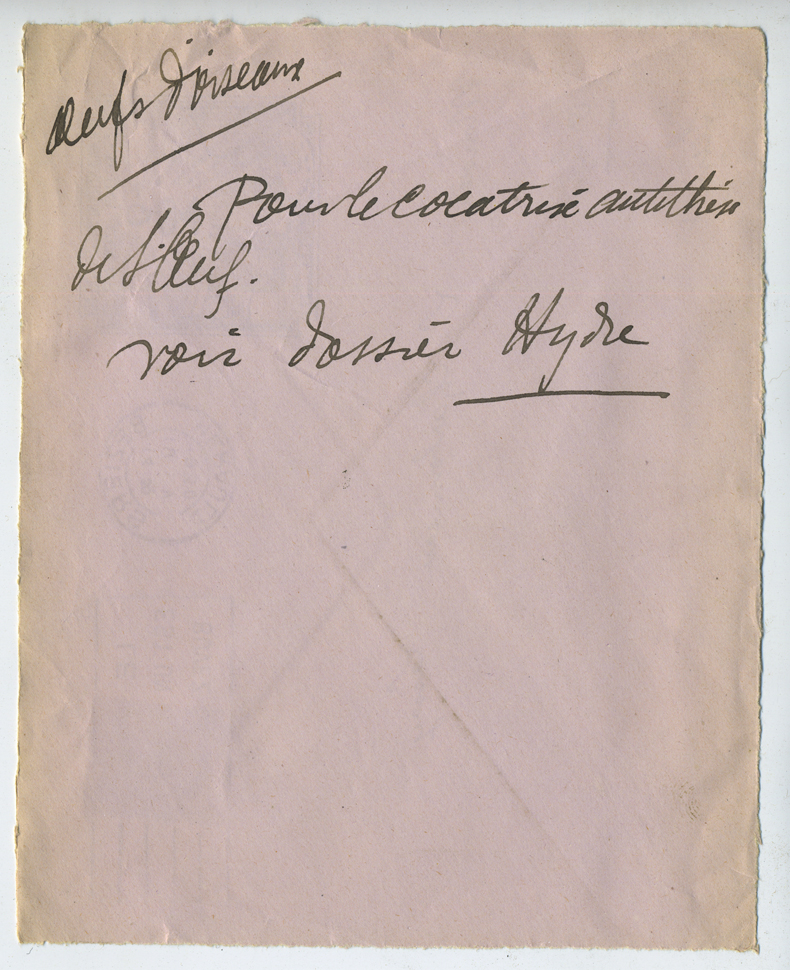 Œufs d'oiseaux
Pour le cocatrix antithèse
de l'Œuf.
voir dossier Hydre